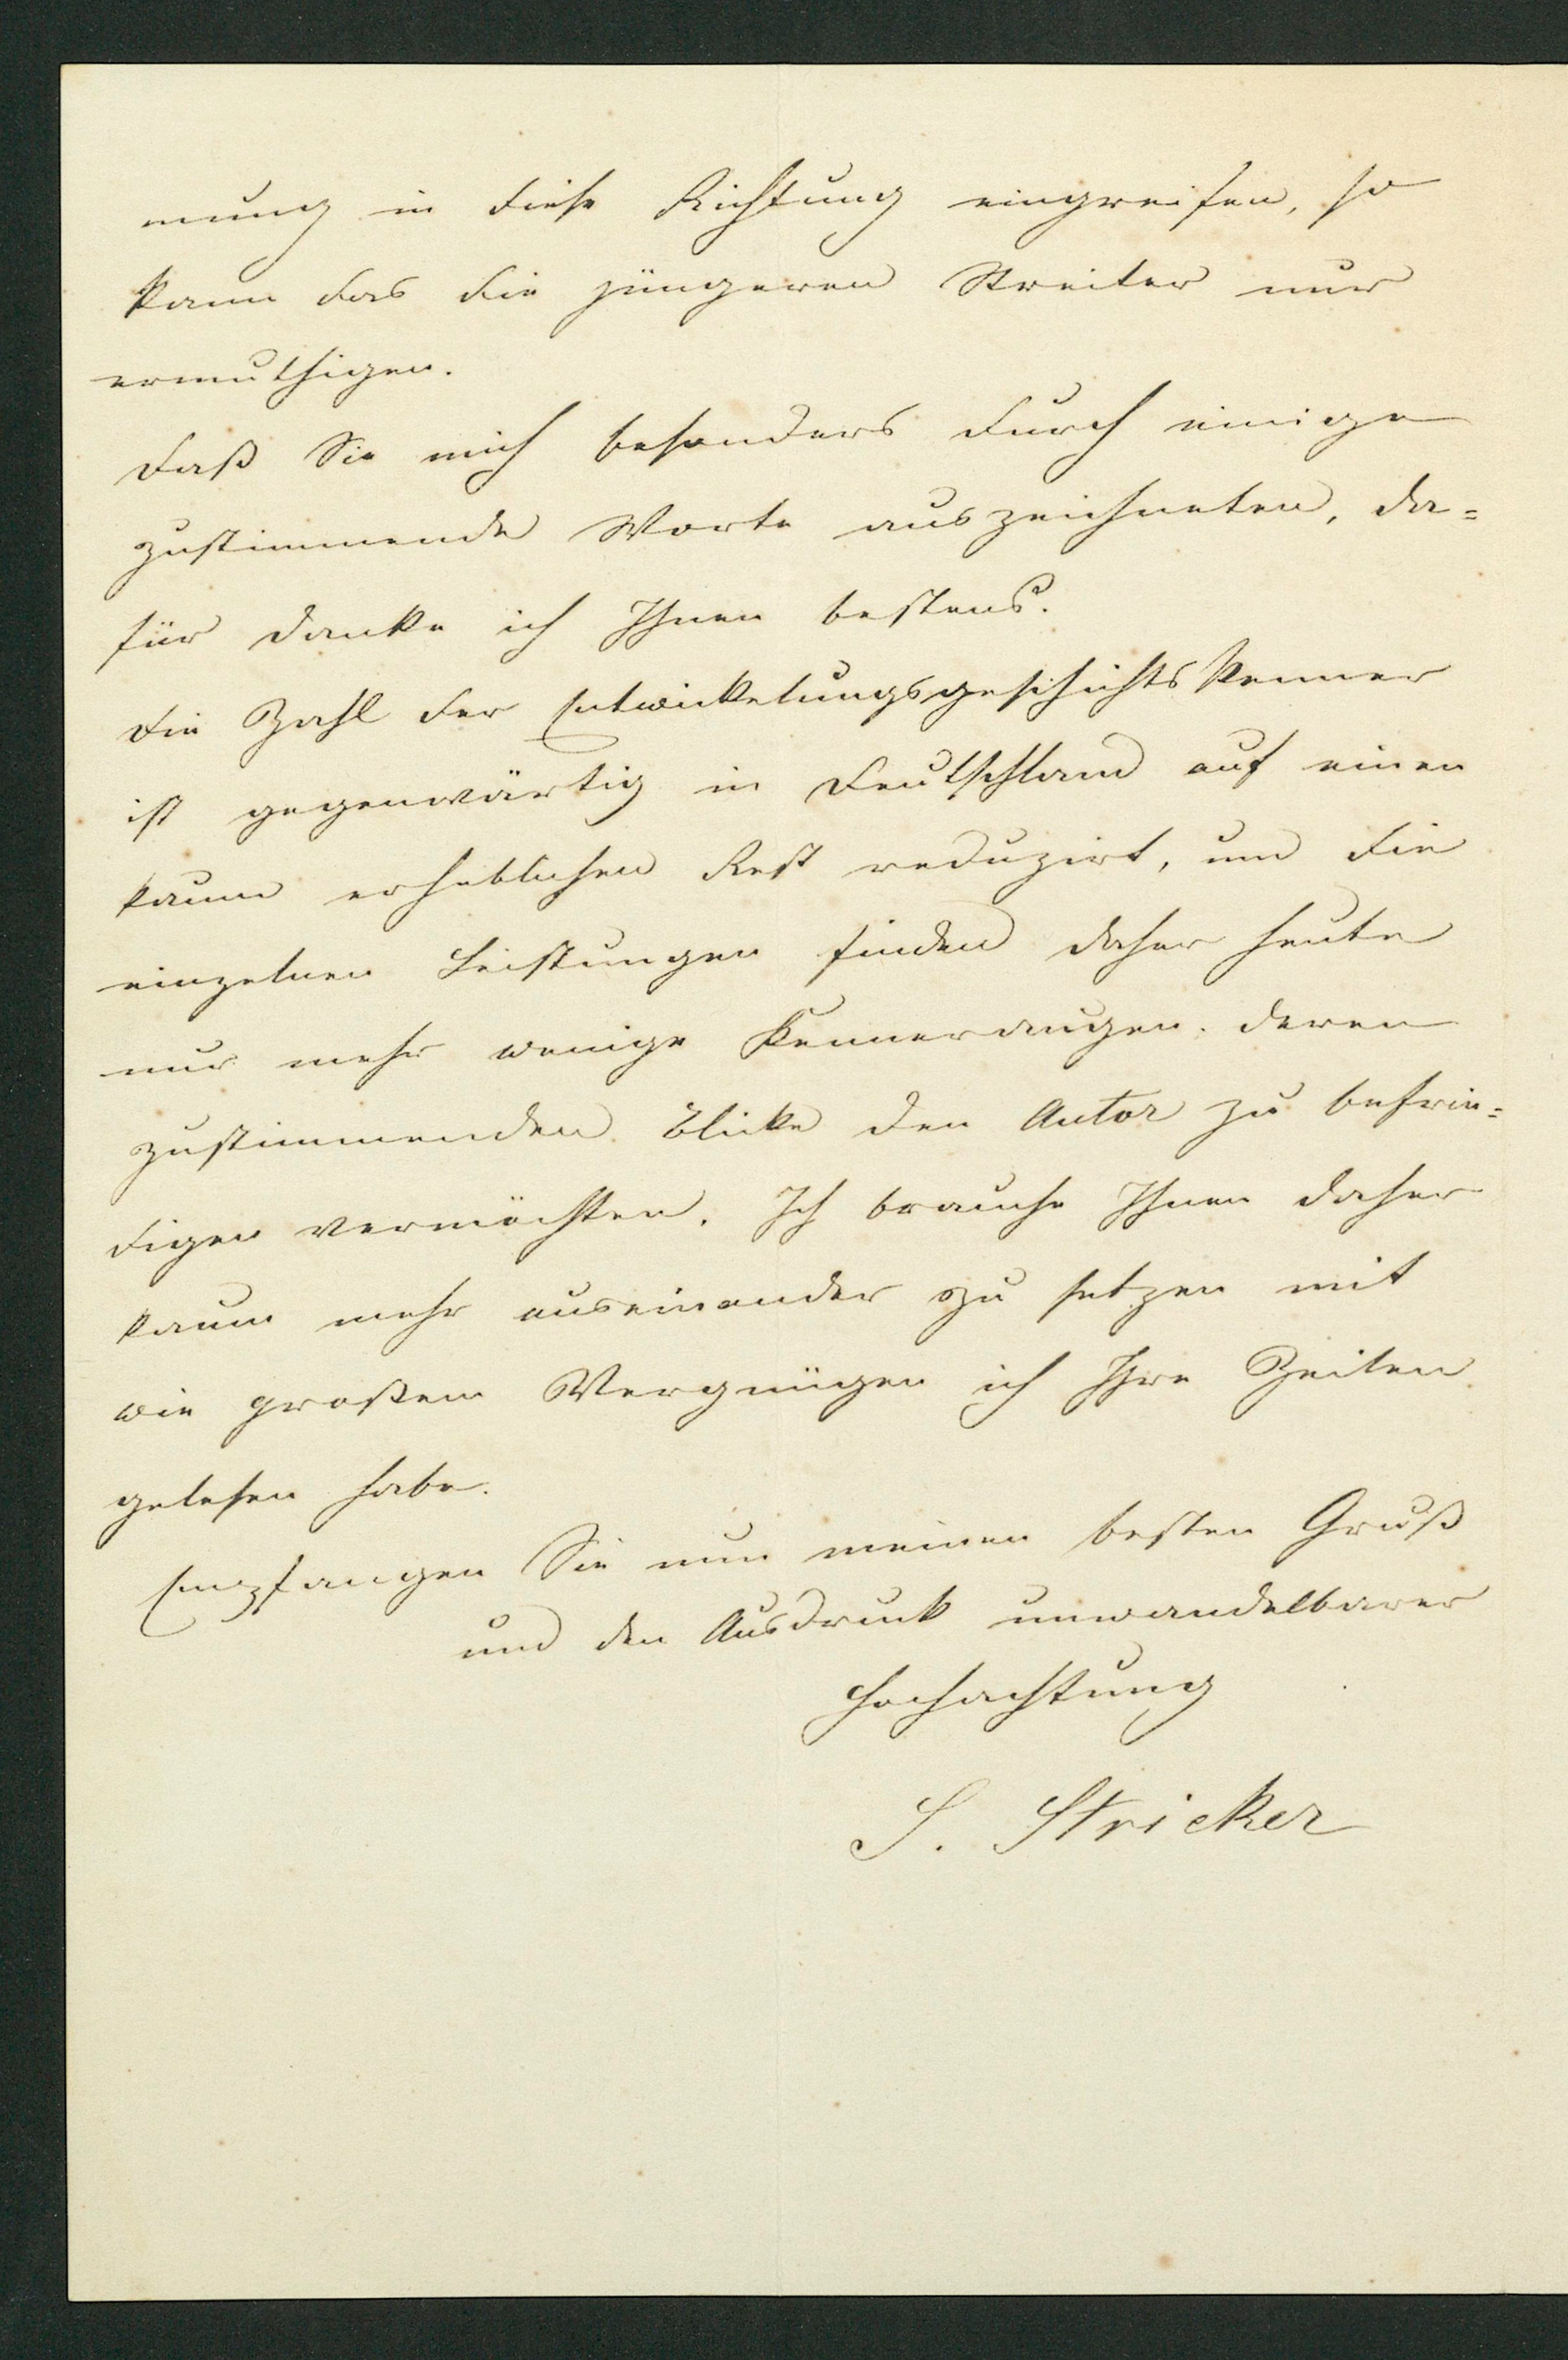 mung in diese Richtung eingreifen, so
kann das die jüngeren Streiter nur
ermuthigen.
Daß Sie mich besonders durch einige
zustimmende Worte auszeichneten, da=
für danke ich Ihnen bestens.
Die Zahl der Entwickelungsgeschichts Kenner
ist gegenwärtig in Deutschland auf einen
kaum erheblichen Rest reduzirt, und die
einzelnen Leistungen finden daher heute
nur mehr wenige Kenneraugen, deren
zustimmenden Blicke den Autor zu befrie=
digen vermöchten. Ich brauche Ihnen daher
kaum mehr auseinander zu setzen mit
wie großem Vergnügen ich Ihre Zeilen
gelesen habe.
Empfangen Sie nun meinen besten Gruß
und den Ausdruck unwandelbarer
Hochachtung
S. Stricker